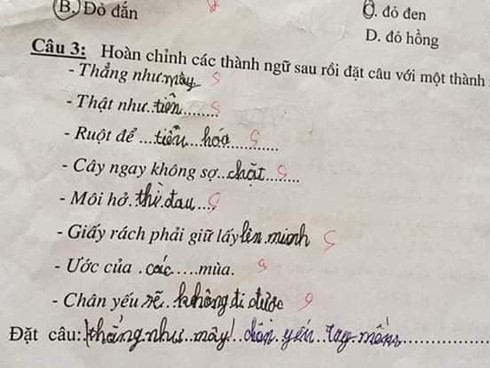 B. Đỏ đắn
C. đỏ đen
D. đỏ hồng
Câu 3: Hoàn chỉnh các thành ngữ sau rồi đặt câu với một thành
- Thẳng như mày
- Thật như..tiền........
- Ruột để ...tiêu..hóa.........
- Cây ngay không sợ..chặt.......
- Môi hở.thì.đau....
- Giấy rách phải giữ lấy lên mình
- Ước của .các.....mùa.
- Chân yếu sẽ..không đi được
Đặt câu: thẳng như..mày! chân yếu..tay.mềm